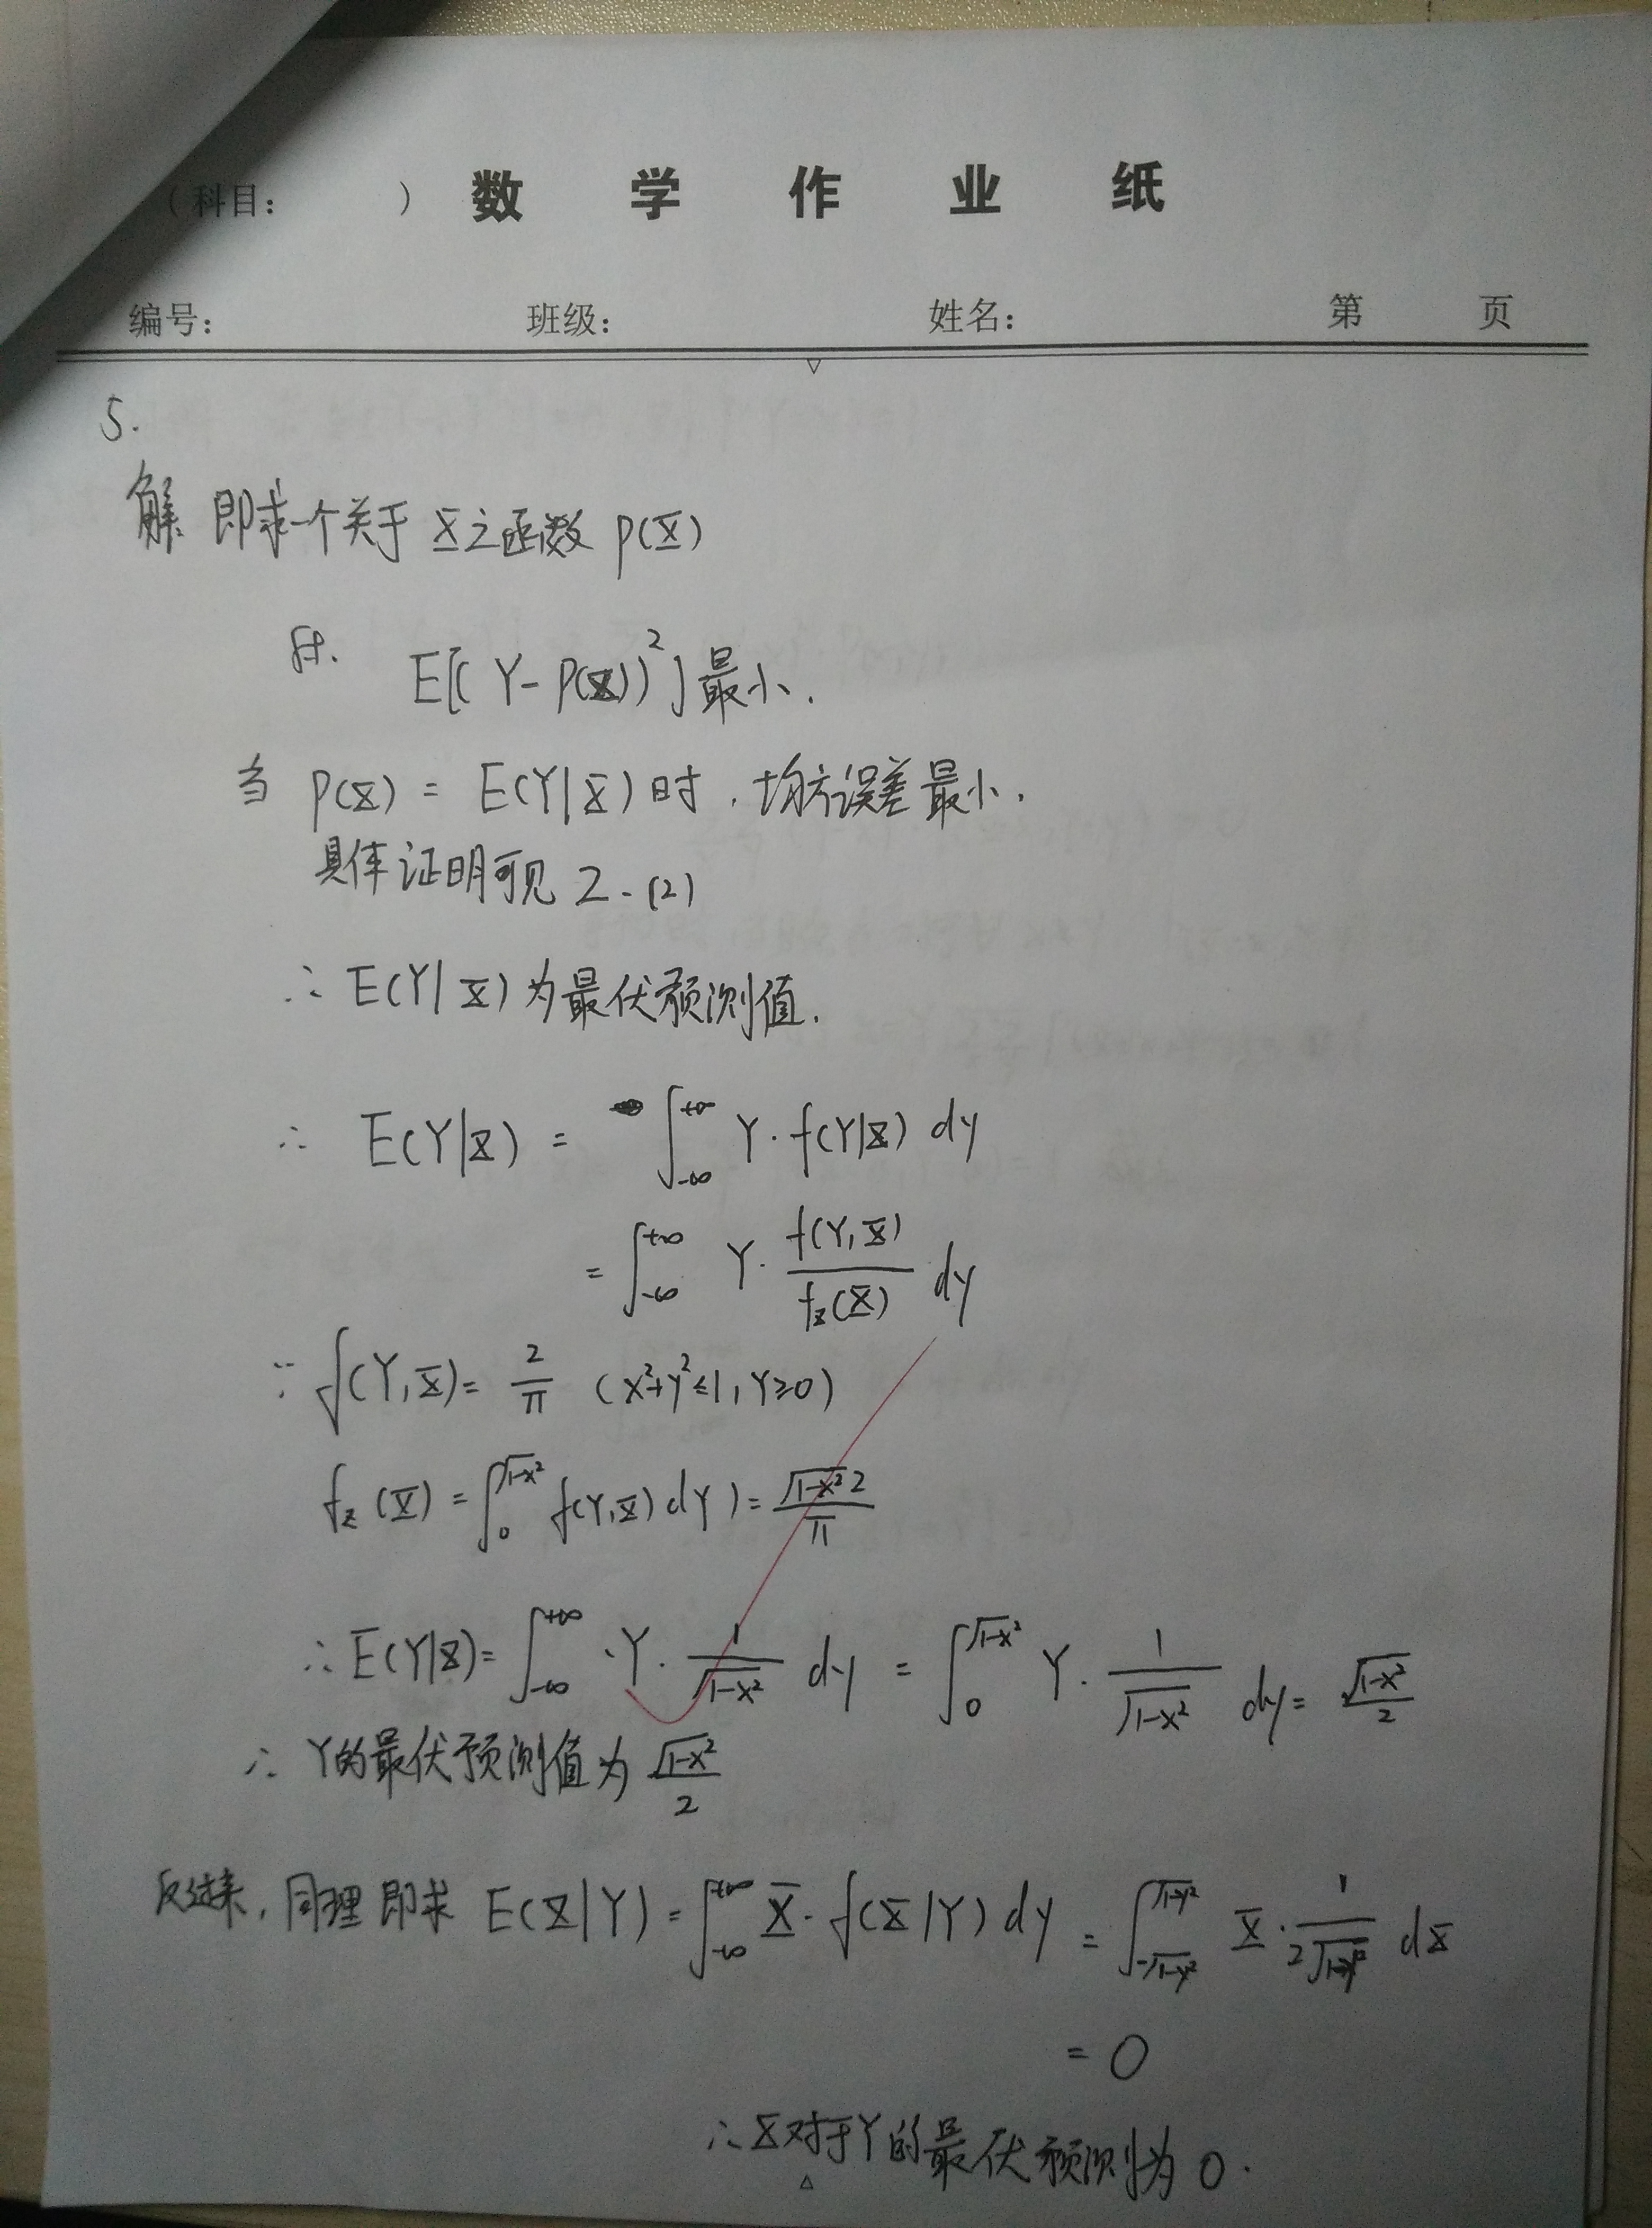 （科目： ） 数学作业纸
编号： 班级： 姓名： 第 页
5.
解 即求一个关于 X 之函数 P(X)
使. E[(Y-P(X))²]最小.
当 P(X) = E(Y|X)时, 均方误差最小.
具体证明可见 2-(2)
∴ E(Y|X)为最优预测值.
∴ E(Y|X) = ∫_{-∞}^{+∞} Y·f(Y|X) dy
= ∫_{-∞}^{+∞} Y· f(Y,X)/f_X(X) dy
∵ f(Y,X) = 2/π (x²+y²≤1, Y≥0)
f_X(X) = ∫_0^{√(1-x²)} f(Y,X) dY) = √(1-x²) 2/π
∴ E(Y|X) = ∫_{-∞}^{+∞} ·Y· 1/√(1-x²) dy = ∫_0^{√(1-x²)} Y· 1/√(1-x²) dy = √(1-x²)/2
∴ Y的最优预测值为 √(1-x²)/2
反过来, 同理即求 E(X|Y) = ∫_{-∞}^{+∞} X·f(X|Y) dy = ∫_{-√(1-y²)}^{√(1-y²)} X· 1/(2√(1-y²)) dX
= 0
∴ X对于Y的最优预测为 0.